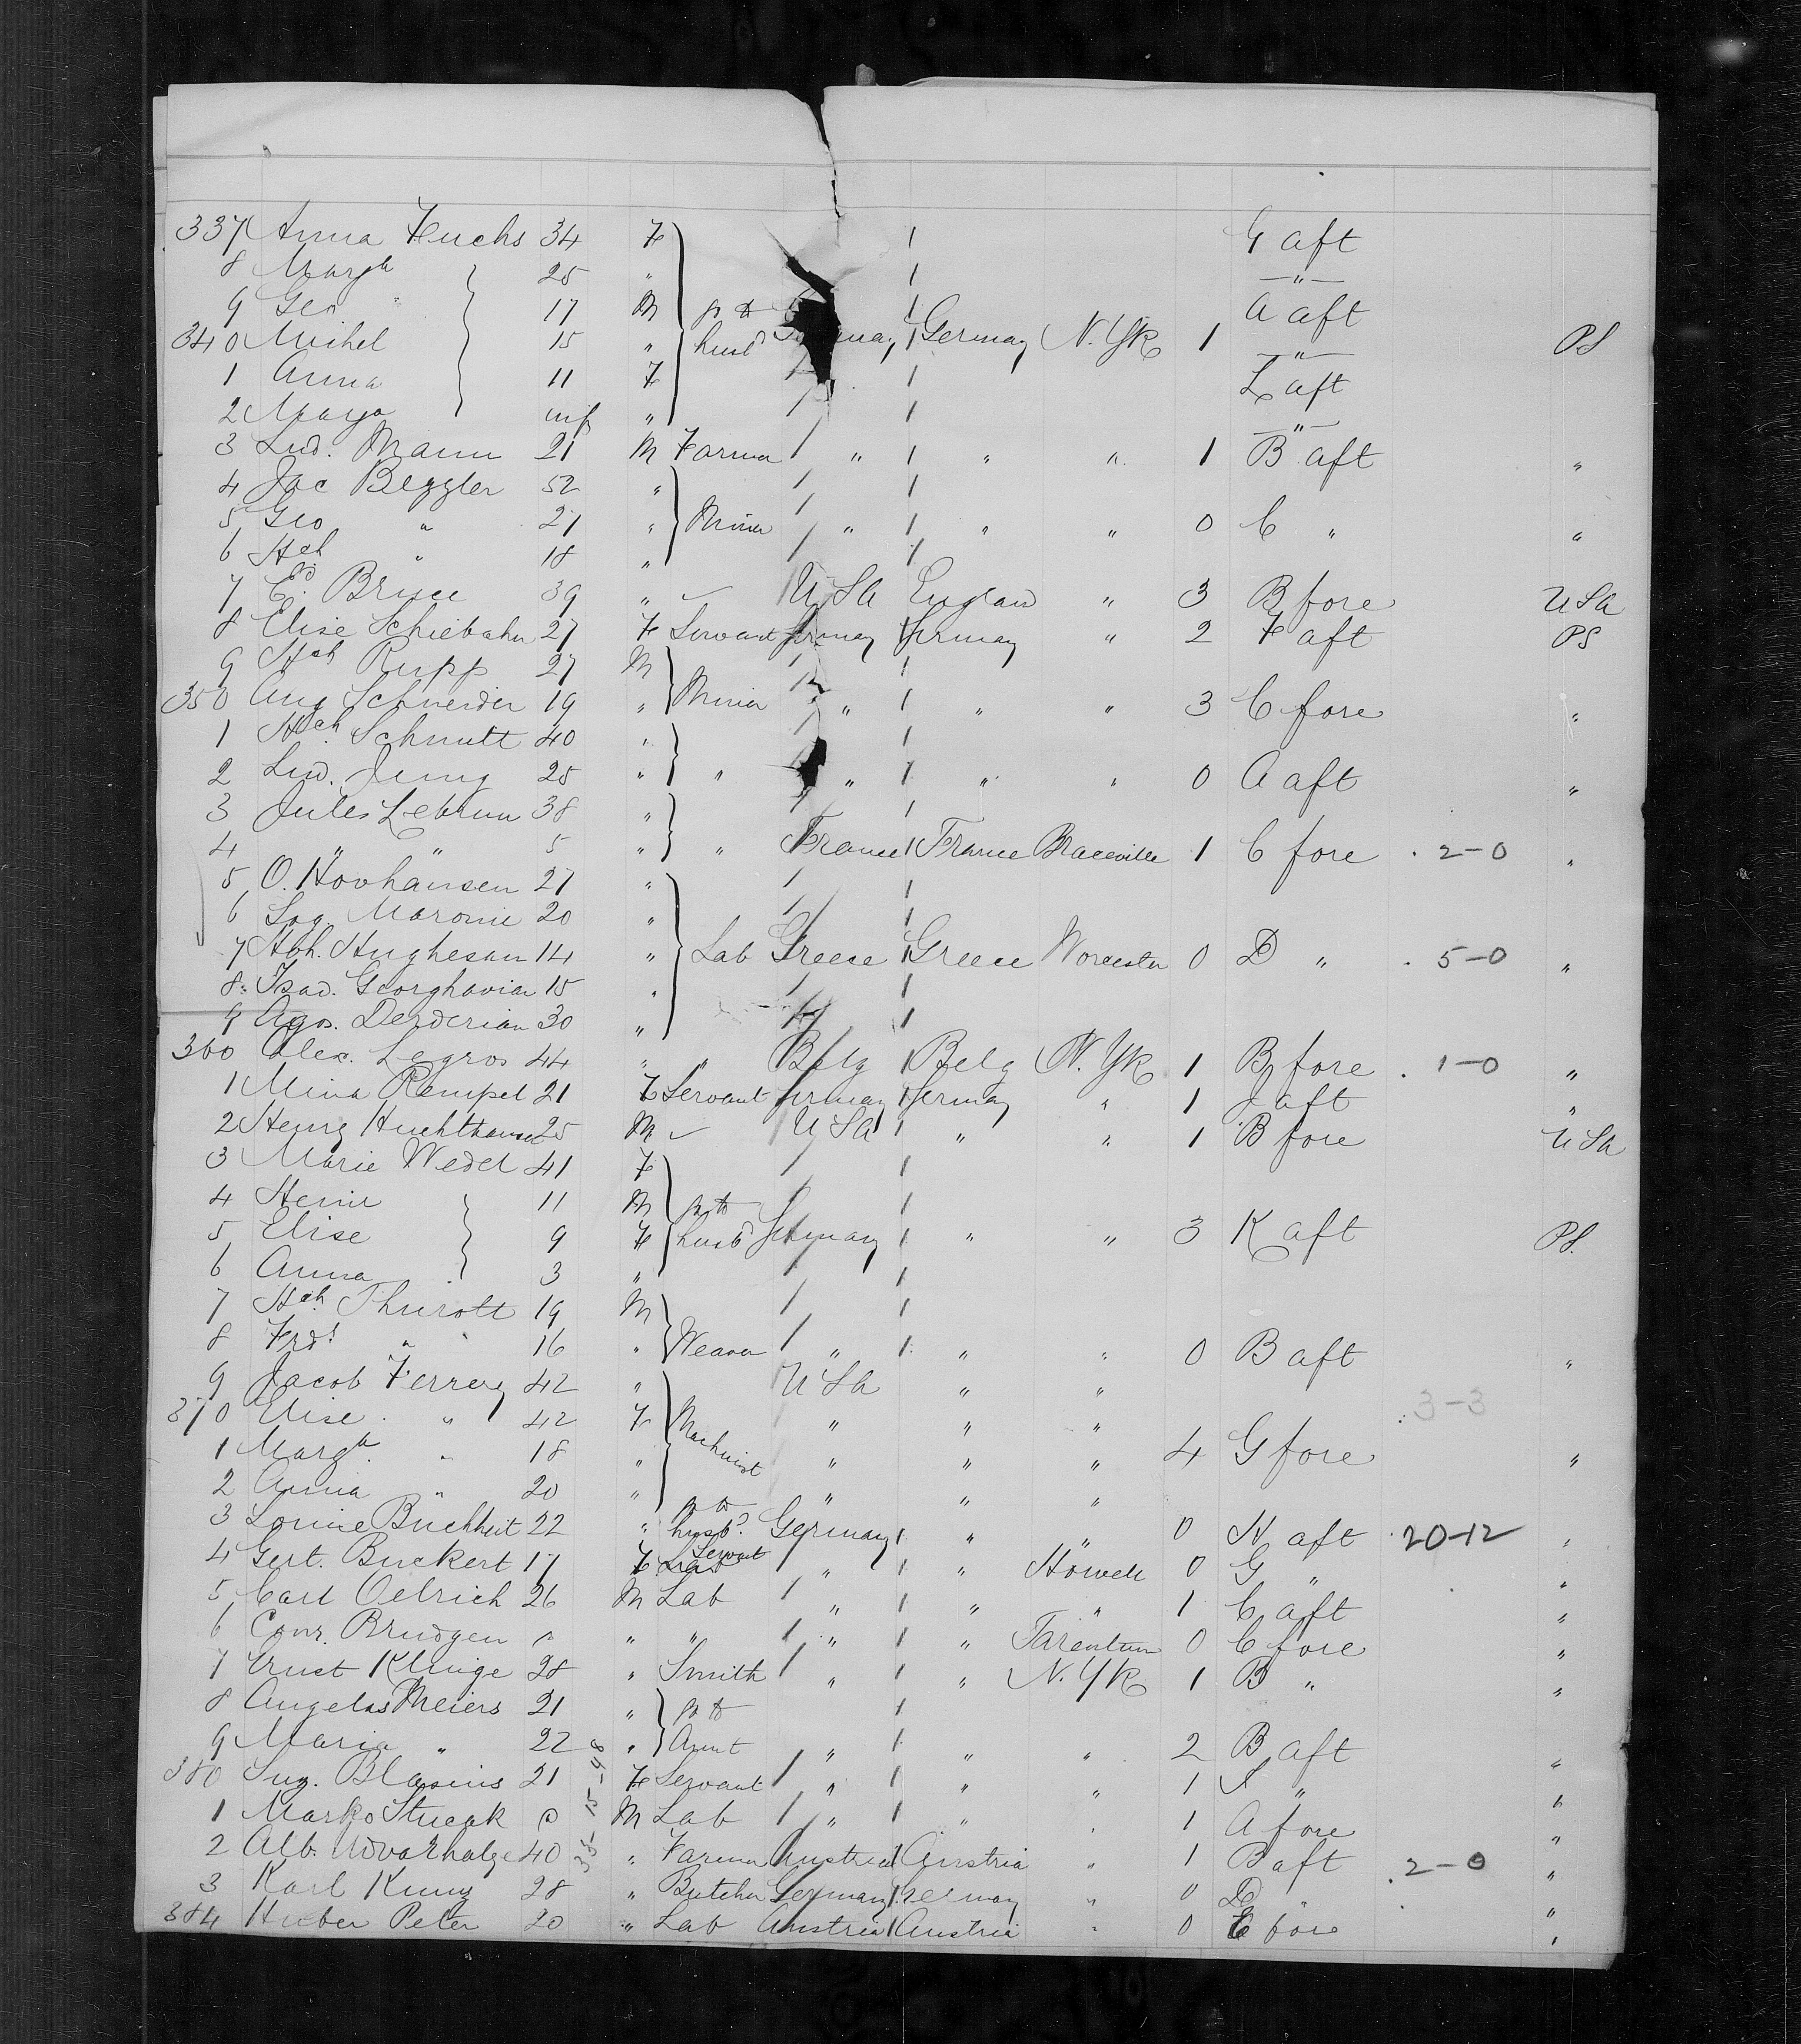 337 Anna Fuchs 34 F G aft
8 Margh 25 " — " —
9 Geo " 17 M go to A aft
340 Michel 15 " husbd many Germany N. Yk 1 — " — PS
1 Anna 11 F L aft
2 Marga inf " — " —
3 Lud. Mann 21 M Farmer " " " 1 B aft "
4 Jac Beggler 52 "
5 Geo " 21 " Miner " " " 0 C " "
6 Hch " 18 "
7 Ed. Bruce 39 " ✓ USA England " 3 B fore USA
8 Elise Schiebahn 27 F Servant Germany Germany " 2 F aft PS
9 Hch Rupp 27 M
350 Aug Schneider 19 " Miner " " " 3 C fore "
1 Hch. Schmitt 40 "
2 Lud. Jung 25 " " " " " 0 A aft "
3 Jules Lebrun 38 "
4 " " 5 " " France France Braceville 1 C fore . 2-0 "
5 O. Hovhansen 27 "
6 Sag. Maronie 20 "
7 Hoh. Hughesan 14 " Lab Greece Greece Worcester 0 D " . 5-0 "
8 Isad. Georghavian 15 "
9 Agos. Derderian 30 "
360 Alex. Legros 44 " " Belg Belg N. Yk 1 B fore . 1-0 "
1 Mina Rempel 21 F Servant Germany Germany " 1 J aft "
2 Henry Huchthausen 25 M ✓ USA " " 1 B fore USA
3 Marie Wedel 41 F
4 Henr 11 M go to
5 Elise 9 F husbd Germany " " 3 K aft PS.
6 Anna 3 "
7 Hch. Thurott 19 M
8 Frdr " 16 " Weaver " " " 0 B aft "
9 Jacob Ferrey 42 " USA " "
370 Elise " 42 F Machinist " " " 3-3
1 Margh. " 18 " " " " 4 G fore "
2 Anna " 20 " " " "
3 Louise Buchheit 22 " go to husbd. Germany " " 0 H aft 20-12 "
4 Gert. Buckert 17 F Servant " " Howell 0 G " "
5 Carl Oelrich 26 M Lab " " " 1 C aft "
6 Conr. Brudgen " " " " Tarentum 0 C fore "
7 Ernst Kluige 28 " Smith " " N. Yk 1 B " "
8 Angelas Meiers 21 " go to
9 Maria " 22 " Aunt " " " 2 B aft "
380 Sug. Blasius 21 F Servant " " " 1 I " "
1 Marko Strugk M Lab " " " 1 A fore "
2 Alb. Udvarhalge 40 " Farmer Austria Austria " 1 B aft . 2-0 "
3 Karl Kunz 28 " Butcher Germany Germany " 0 D " "
384 Huber Peter 20 " Lab Austria Austria " 0 E fore "